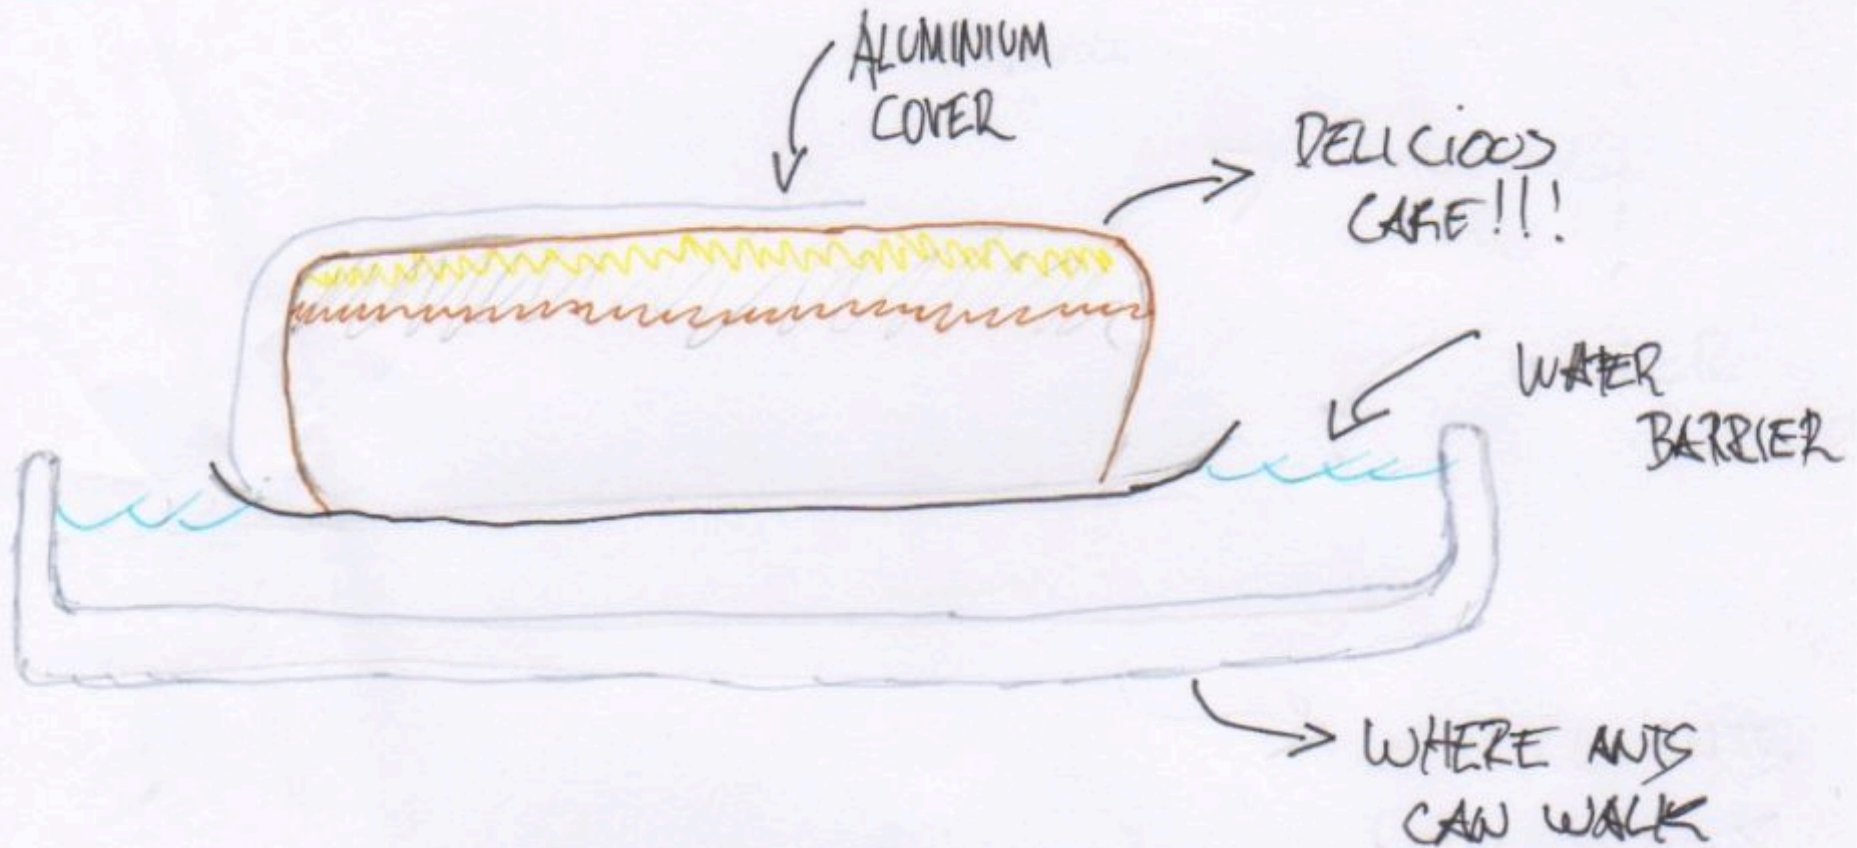 ALUMINIUM
COVER
DELICIOUS
CAKE!!!
WATER
BARRIER
WHERE ANTS
CAN WALK